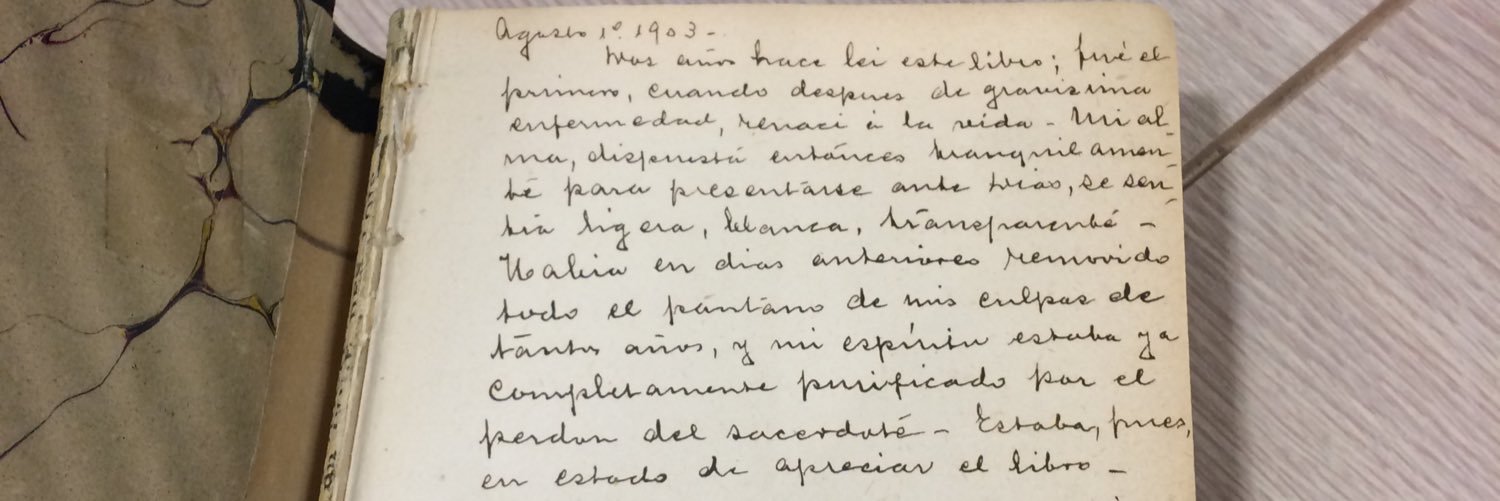 Agosto 1º. 1903 -
Dos años hace lei este libro; fué el
primero, cuando despues de gravisima
enfermedad, renaci á la vida - Mi al-
ma, dispuestá entónces tranquilamen-
té para presentarse ante Dios, se sen-
tia ligera, blanca, transparenté -
Habia en dias anteriores removido
todo el pántano de mis culpas de
tántos años, y mi espíritu estaba ya
completamente purificado por el
perdon del sacerdoté - Estaba, pues,
en estado de apreciar el libro -